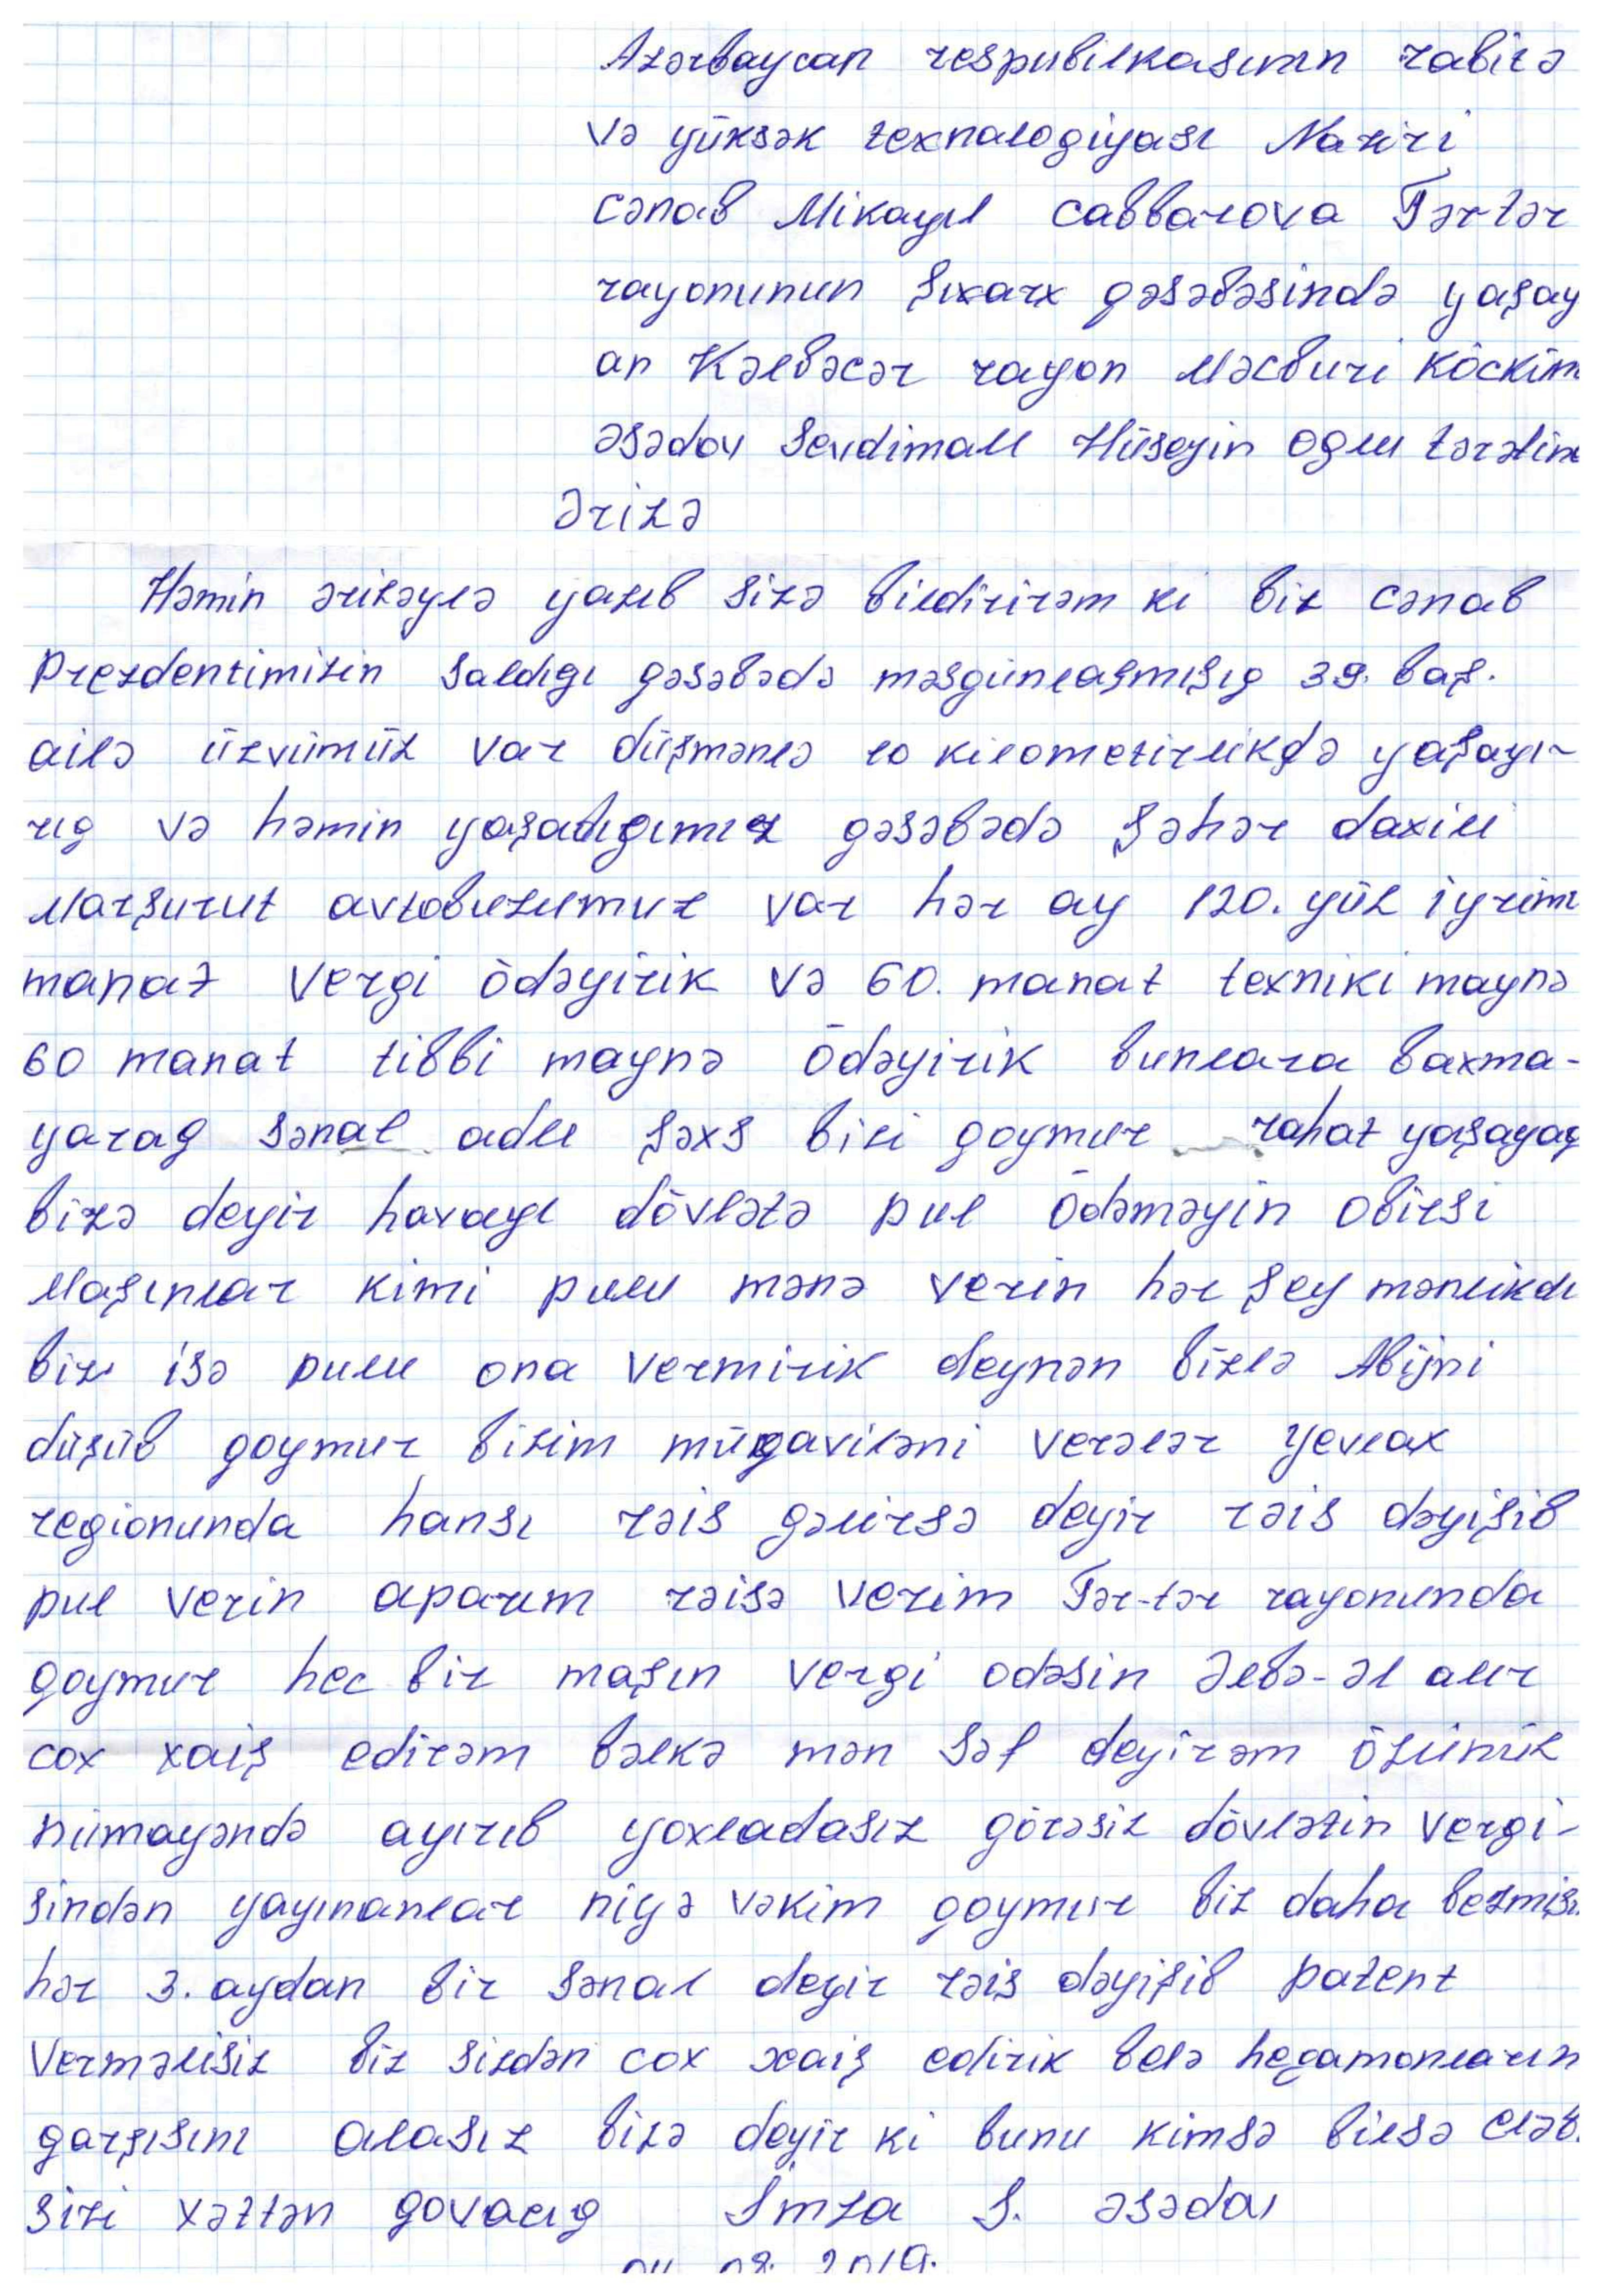 Azərbaycan respubilkasının rabitə
və yüksək texnalogiyası Naziri
cənab Mikayıl cabbarova Tərtər
rayonunun Şıxarx gəsəbəsində yaşay
an Kəlbəcər rayon Məcburi Köckün
əsədov Sevdimalı Hüseyin oglu tərəfin
Ərizə
Həmin ərizəylə yazıb sizə bildirirəm ki biz cənab
Prezdentimizin saldıgı gəsəbədə məsgünlaşmışıg 39. baş.
ailə üzvümüz var düşmənlə 10 kilometirlikdə yaşayı-
rıg və həmin yaşadıgımız gəsəbədə şəhər daxili
Marşurut avtobuzumuz var hər ay 120. yüz iyrimi
manat vergi ödəyirik və 60. manat texniki maynə
60 manat tibbi maynə ödəyirik bunlara baxma-
yarag Sənal adlı şəxs bizi goymur rahat yaşayag
bizə deyir havayı dövlətə pul ödəməyin obirsi
Maşınlar kimi pulu mənə verin hər şey mənlikdi
biz isə pulu ona vermirik deynən bizlə Abijni
düşüb goymur bizim mügaviləni verələr yevlax
regionunda hansı rəis gəlirsə deyir rəis dəyişib
pul verin aparım rəisə verim Tər-tər rayonunda
goymur hec bir maşın vergi odəsin Əlbə-əl alır
cox xaiş edirəm bəlkə mən səf deyirəm özünüz
nümayəndə ayırıb yoxladasız görəsiz dövlətin vergi-
sindən yayınanlar niyə vəkim goymur biz daha bezmişı
hər 3. aydan bir Sənal deyir rəis dəyişib patent
Verməlisiz biz sizdən cox xaiş edirik belə hegamonların
garşısını alasız bizə deyir ki bunu kimsə bilsə eləb.
sizi xəttən govacıg İmza S. əsədov